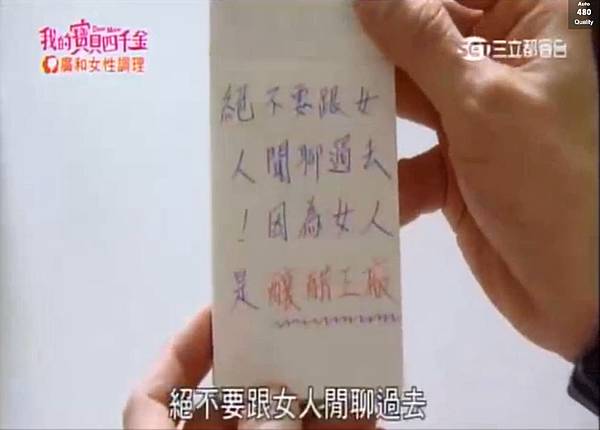 我的寶貝四千金
Dear Mom
廣和女性調理
SET三立都會台
Auto
480
Quality
絕不要跟女
人閒聊過去
！因為女人
是釀醋工廠
絕不要跟女人閒聊過去